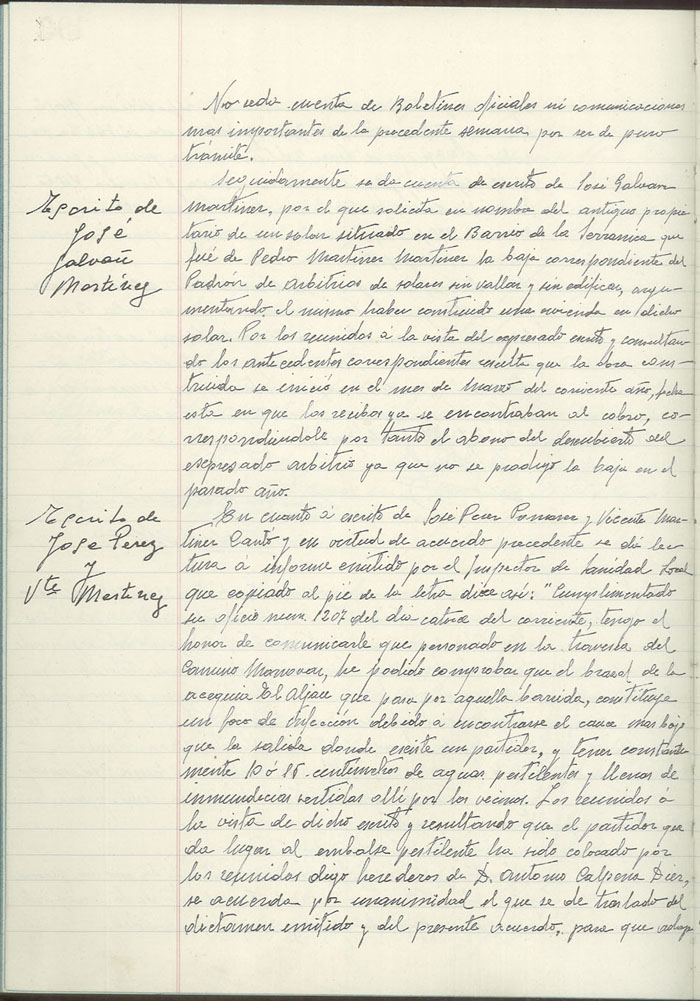 No se da cuenta de Boletines oficiales ni comunicaciones
mas importantes de la precedente semana por ser de puro
trámite.
Seguidamente se da cuenta de escrito de José Galvan
Escrito de
José
Galvañ
Martínez
Martinez, por el que solicita en nombre del antiguo propie-
tario de un solar situado en el Barrio de la Serranica que
fué de Pedro Martinez Martinez la baja correspondiente del
Padrón de arbitrios de solares sin vallar y sin edificar, argu-
mentando el mismo haber construido una vivienda en dicho
solar. Por los reunidos á la vista del expresado escrito y consultan-
do los antecedentes correspondientes resulta que la obra cons-
truida se inició en el mes de Marzo del corriente año, fecha
esta en que los recibos ya se encontraban al cobro, co-
rrespondiendole por tanto el abono del descubierto del
expresado arbitrio ya que no se produjo la baja en el
pasado año.
Escrito de
Jose Perez
y
Vte Martinez
En cuanto á escrito de José Perez Pomares y Vicente Mar-
tinez Cantó y en virtud de acuerdo precedente se dá lec-
tura a informe emitido por el Inspector de Sanidad Local
que copiado al pie de la letra dice asi: "Cumplimentado
su oficio num. 1207 del dia catorce del corriente, tengo el
honor de comunicarle que personado en la travesia del
Camino Monovar, he podido comprobar que el brazal de la
acequia El Aljau que pasa por aquella barriada, constituye
un foco de infección debido á encontrarse el cauce mas bajo
que la salida donde existe un partidor, y tener constante-
mente 10 ó 15 centimetros de aguas pestilentes y llenas de
inmundicias vertidas alli por los vecinos. Los reunidos á
la vista de dicho escrito y resultando que el partidor que
da lugar al embalse pestilente ha sido colocado por
los reunidos digo herederos de D. Antonio Calpena Diez,
se acuerda por unanimidad el que se de traslado del
dictamen emitido y del presente acuerdo, para que